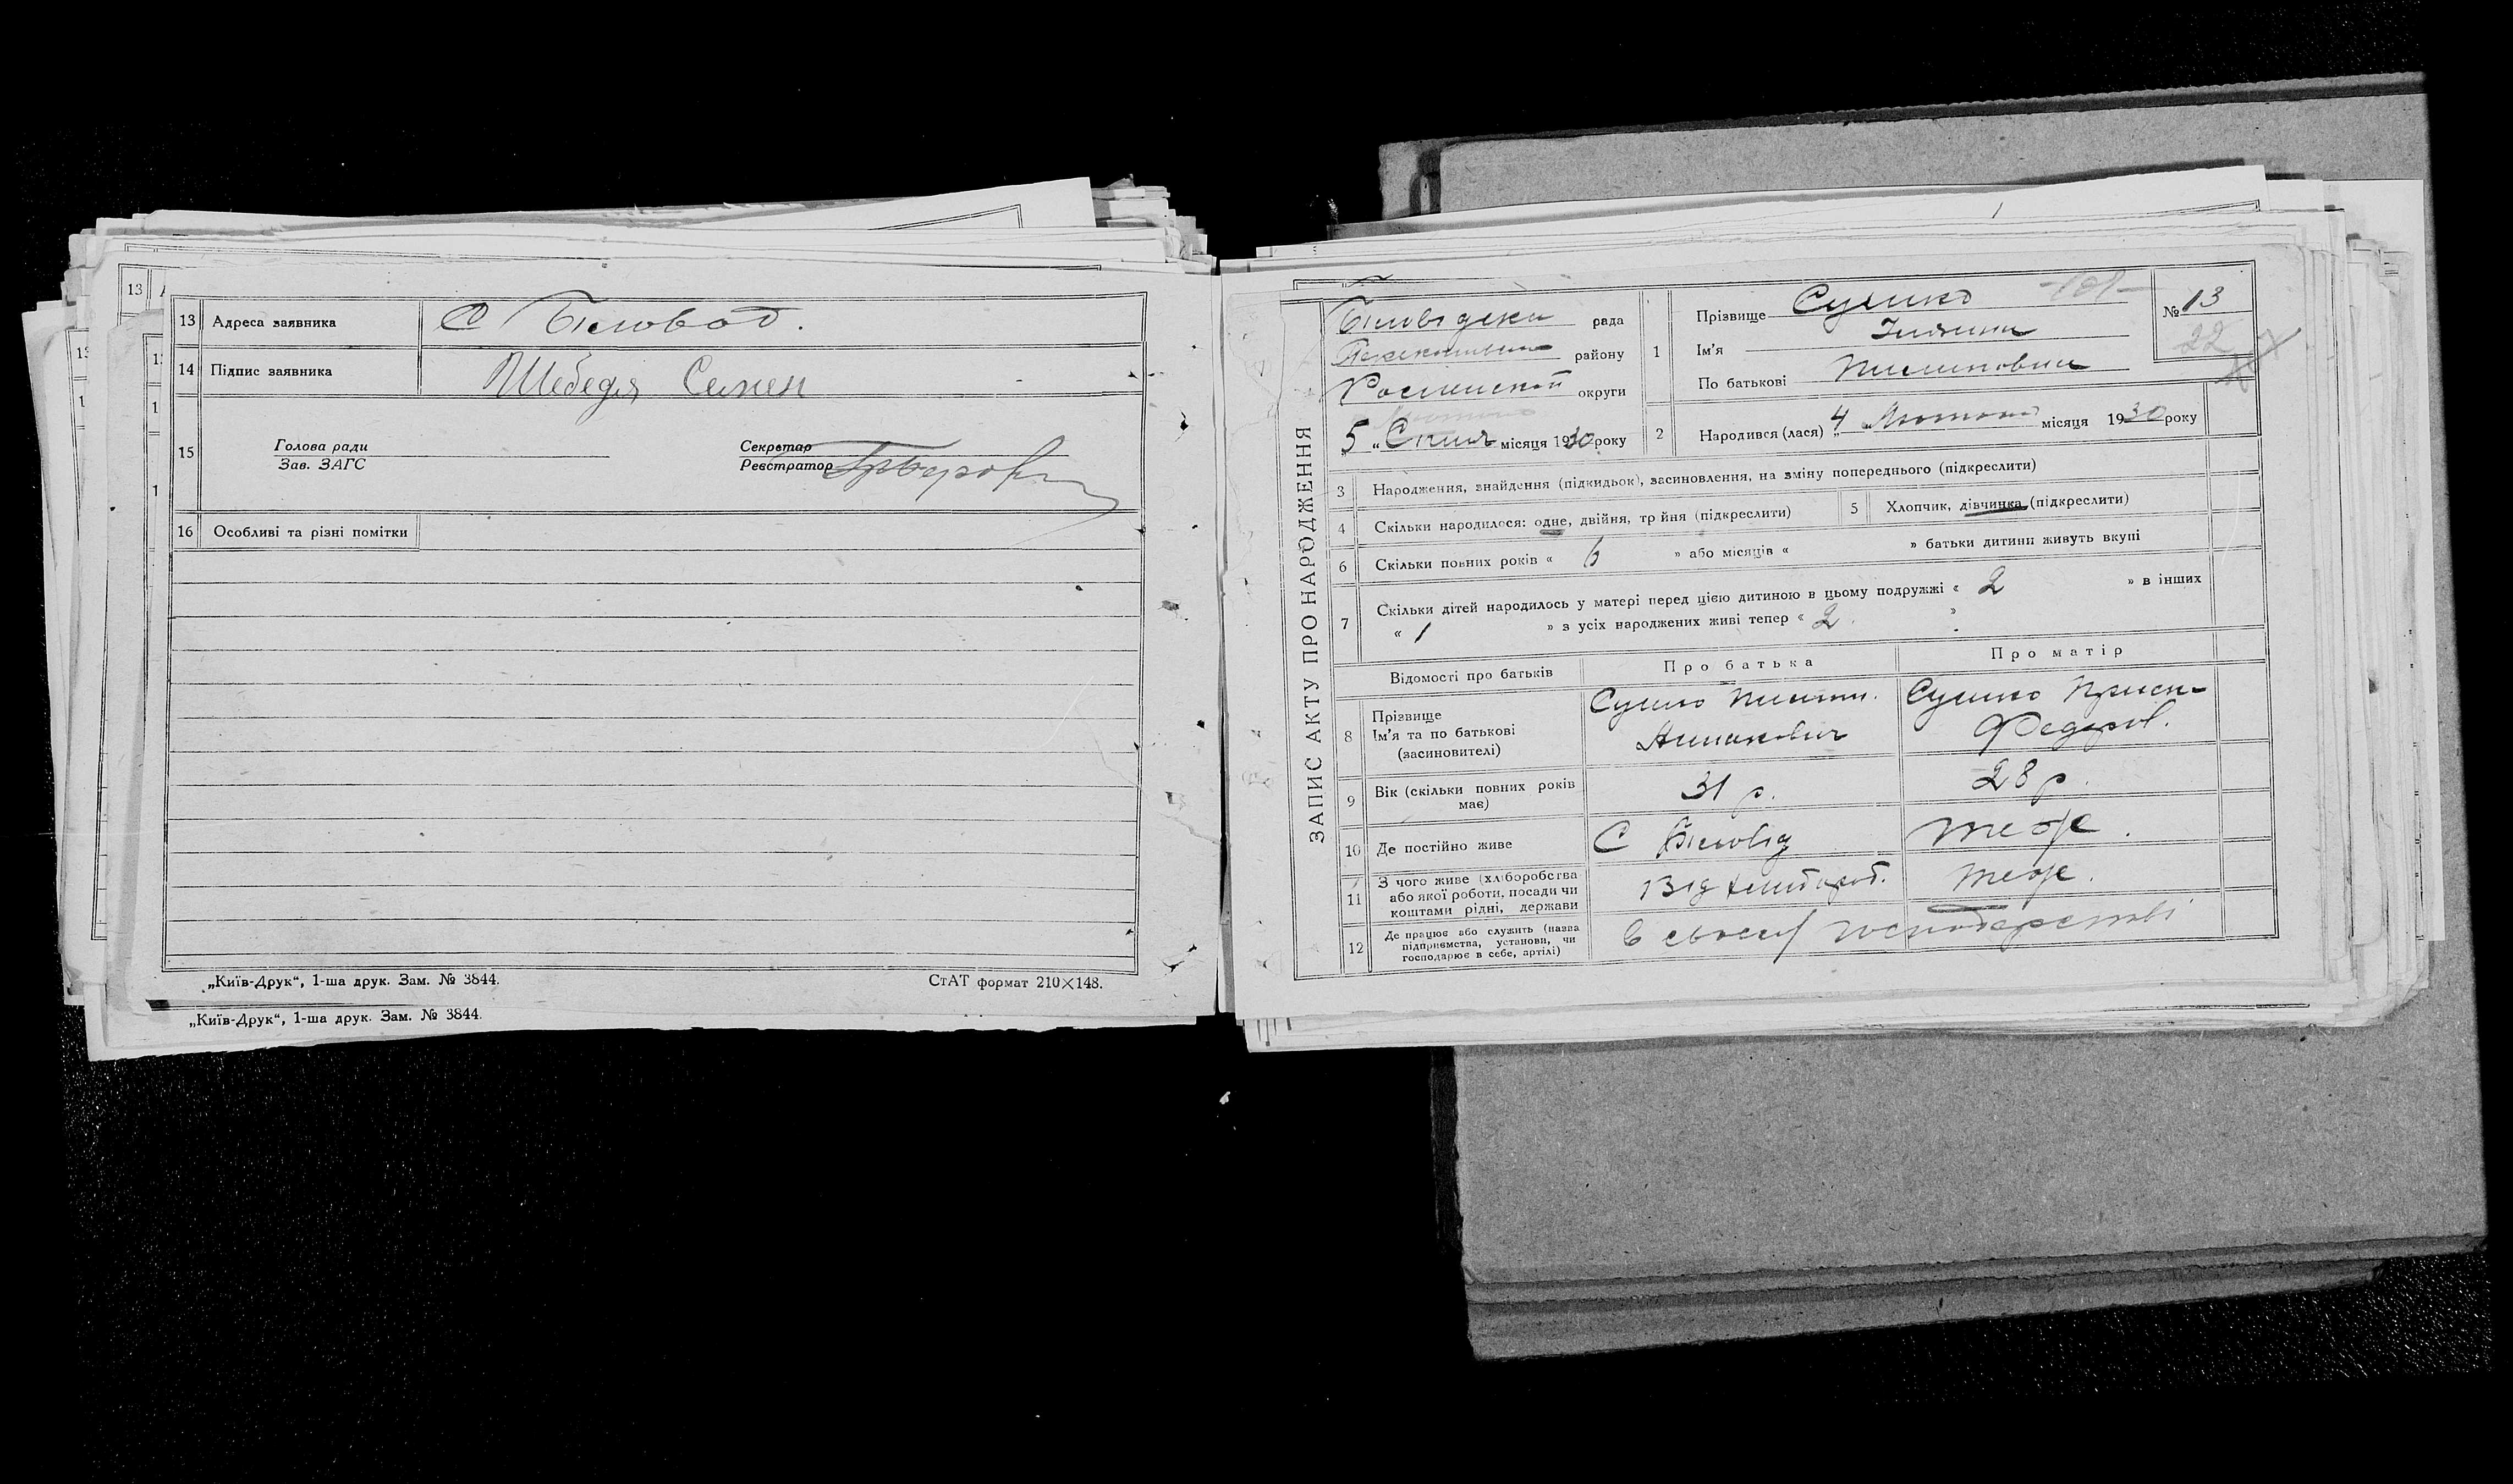 13
13 Адреса заявника С Біловод.
14 Підпис заявника Шебедя Семен
15 Голова ради
Зав. ЗАГС
Секретар
Реєстратор
16 Особливі та різні помітки
„Київ-Друк“, 1-ша друк. Зам. № 3844.
СтАТ формат 210×148.
„Київ-Друк“, 1-ша друк. Зам. № 3844.
ЗАПИС АКТУ ПРО НАРОДЖЕННЯ
Біловідська рада
району
Роменської округи
5 „ Січня місяця 1930 року
1 Прізвище Сушко
Ім'я
По батькові Пилиповна
№ 13
22
2 Народився (лася) „4 Лютого місяця 1930 року
3 Народження, знайдення (підкидьок), засиновлення, на зміну попереднього (підкреслити)
4 Скільки народилося: одне, двійня, трійня (підкреслити)
5 Хлопчик, дівчинка (підкреслити)
6 Скільки повних років « 6 » або місяців « » батьки дитини живуть вкупі
7 Скільки дітей народилось у матері перед цією дитиною в цьому подружжі « 2 » в інших
« 1 » з усіх народжених живі тепер « 2 »
Відомості про батьків Про батька Про матір
8 Прізвище
Ім'я та по батькові
(засиновителі)
Сушко Пилип.
Сушко Прися
Федоров.
9 Вік (скільки повних років
має)
31 р.
28 р.
10 Де постійно живе С Біловід теж.
11 З чого живе (хліборобства
або якої роботи, посади чи
коштами рідні, держави
Від хлібороб. теж.
12 Де працює або служить (назва
підприємства, установи, чи
господарює в себе, артілі)
В своєму господарстві